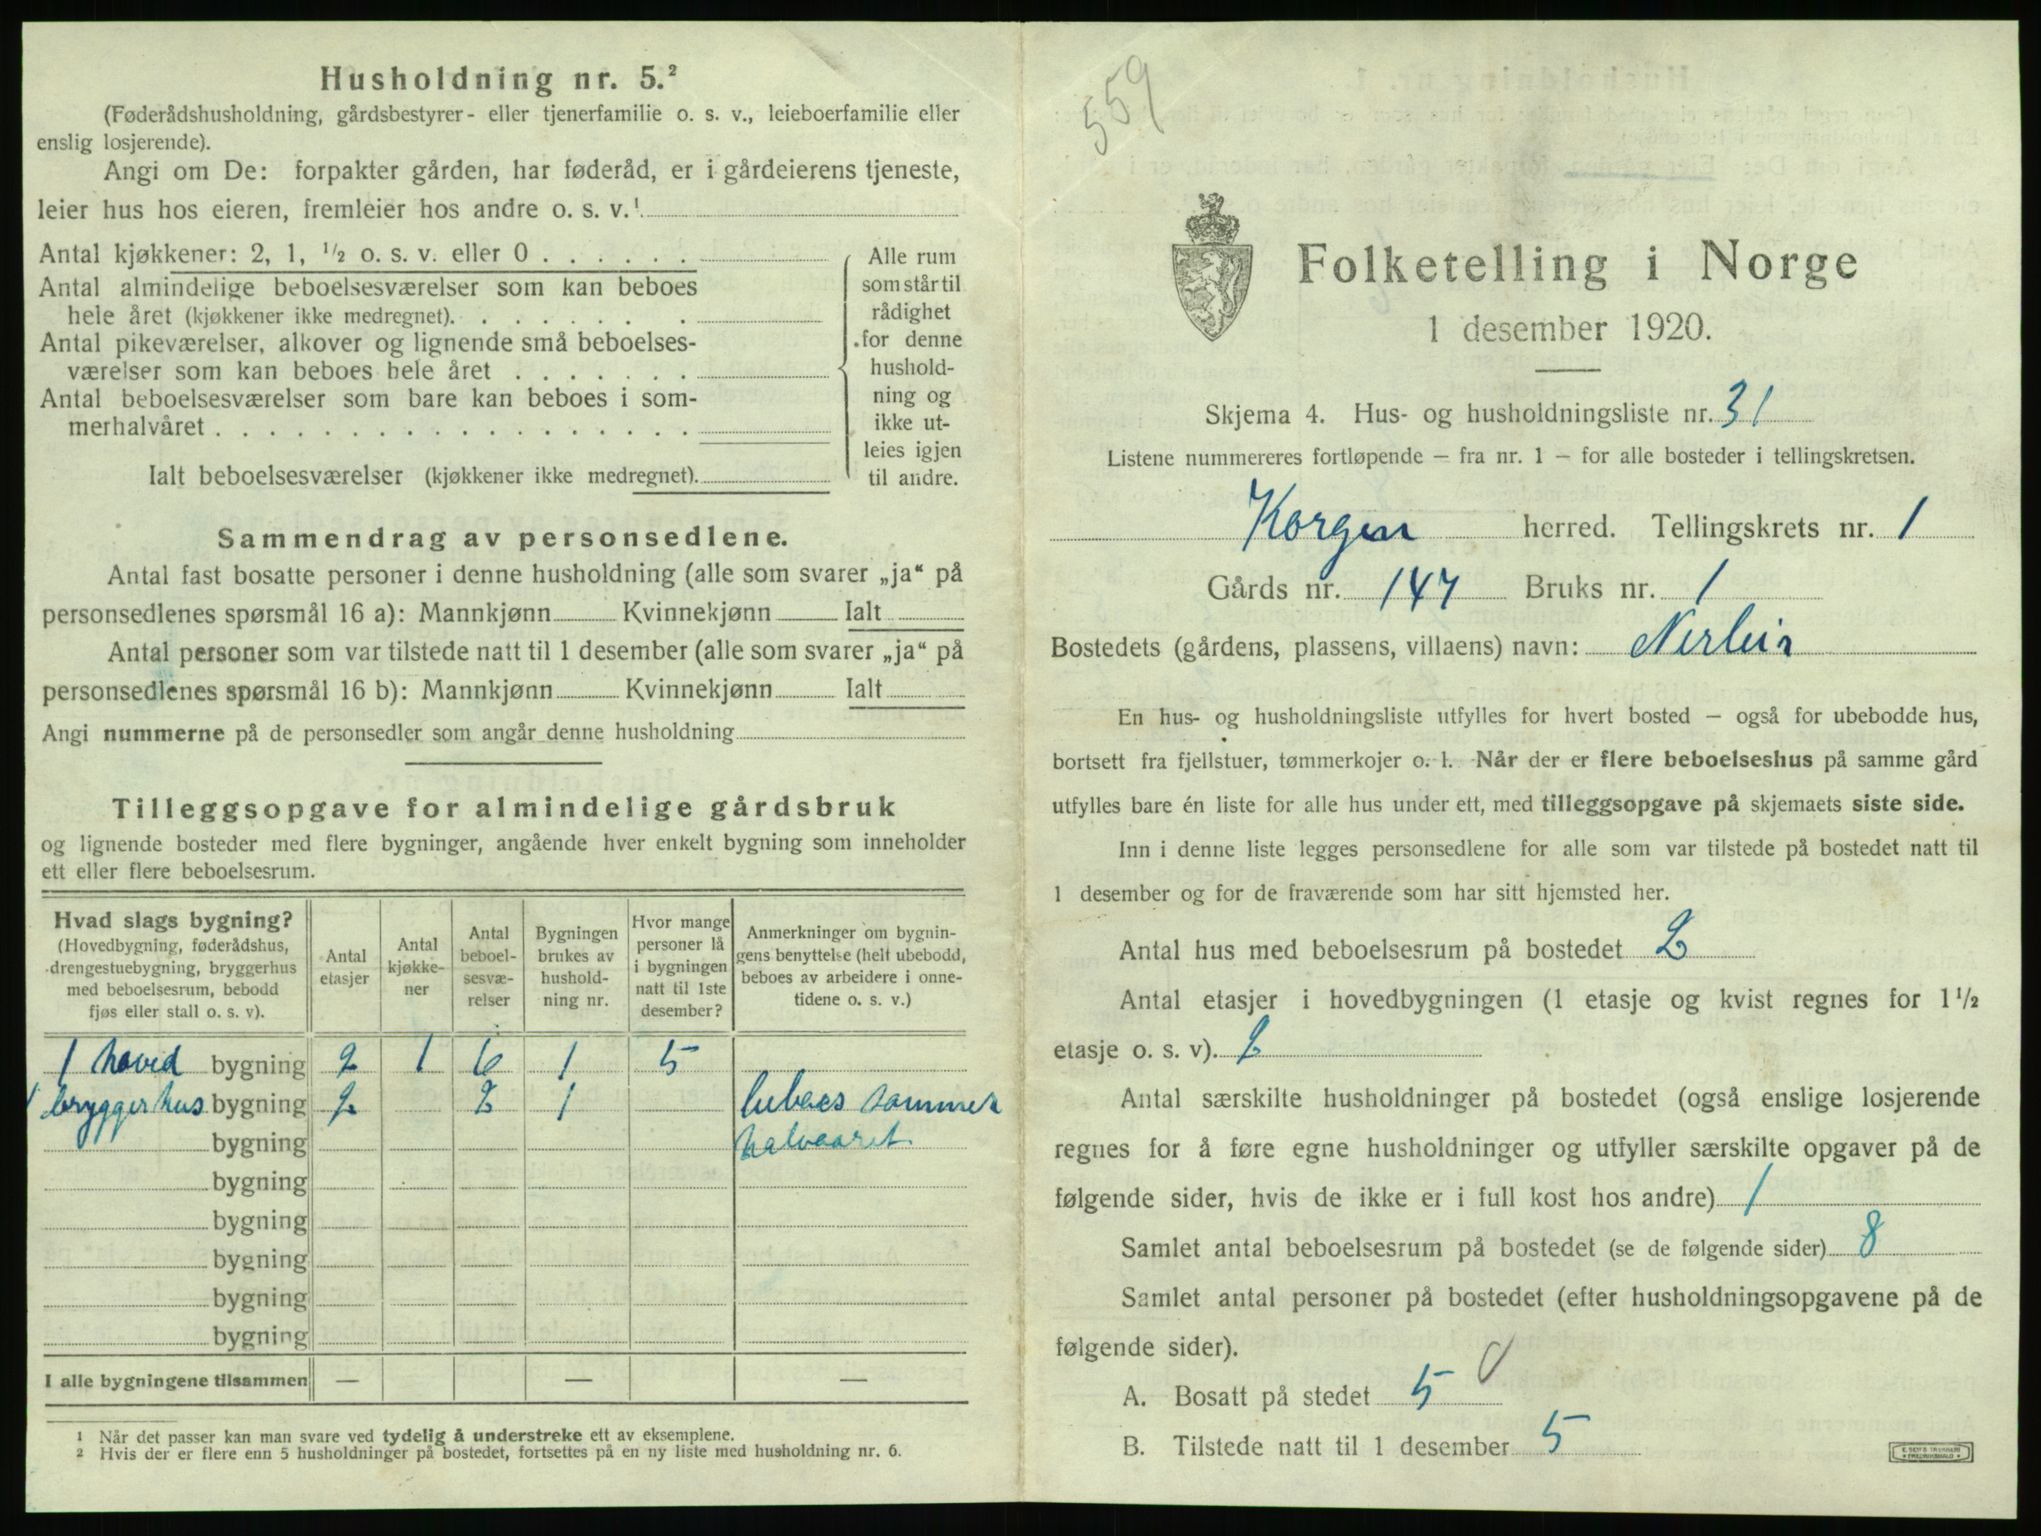 Husholdning nr. 5.²
(Føderådshusholdning, gårdsbestyrer- eller tjenerfamilie o. s. v., leieboerfamilie eller
enslig losjerende).
Angi om De: forpakter gården, har føderåd, er i gårdeierens tjeneste,
leier hus hos eieren, fremleier hos andre o. s. v.¹
Antal kjøkkener: 2, 1, ½ o. s. v. eller 0 . . . . . .
Antal almindelige beboelsesværelser som kan beboes
hele året (kjøkkener ikke medregnet). . . . . . . . .
Antal pikeværelser, alkover og lignende små beboelses-
værelser som kan beboes hele året . . . . . . .
Antal beboelsesværelser som bare kan beboes i som-
merhalvåret . . . . . . . . . . . . . . . . . .
Ialt beboelsesværelser (kjøkkener ikke medregnet).
Alle rum
som står til
rådighet
for denne
hushold-
ning og
ikke ut-
leies igjen
til andre.
Sammendrag av personsedlene.
Antal fast bosatte personer i denne husholdning (alle som svarer „ja“ på
personsedlenes spørsmål 16 a): Mannkjønn Kvinnekjønn Ialt
Antal personer som var tilstede natt til 1 desember (alle som svarer „ja“ på
personsedlenes spørsmål 16 b): Mannkjønn Kvinnekjønn Ialt
Angi nummerne på de personsedler som angår denne husholdning
Tilleggsopgave for almindelige gårdsbruk
og lignende bosteder med flere bygninger, angående hver enkelt bygning som inneholder
ett eller flere beboelsesrum.
Hvad slags bygning?
(Hovedbygning, føderådshus,
drengestuebygning, bryggerhus
med beboelsesrum, bebodd
fjøs eller stall o. s. v).
Antal
etasjer
Antal
kjøkke-
ner
Antal
beboel-
sesvæ-
relser
Bygningen
brukes av
hushold-
ning nr.
Hvor mange
personer lå
i bygningen
natt til 1ste
desember?
Anmerkninger om bygnin-
gens benyttelse (helt ubebodd,
beboes av arbeidere i onne-
tidene o. s. v.)
1 hoved bygning 2 1 6 1 5
1 bryggerhus bygning 2 2 1 beboes sommer
bygning halvaaret
bygning
bygning
bygning
bygning
bygning
I alle bygningene tilsammen — — —
1 Når det passer kan man svare ved tydelig å understreke ett av eksemplene.
2 Hvis der er flere enn 5 husholdninger på bostedet, fortsettes på en ny liste med husholdning nr. 6.
559
Folketelling i Norge
1 desember 1920.
Skjema 4. Hus- og husholdningsliste nr. 31
Listene nummereres fortløpende — fra nr. 1 — for alle bosteder i tellingskretsen.
Korgen herred. Tellingskrets nr. 1
Gårds nr. 147 Bruks nr. 1
Bostedets (gårdens, plassens, villaens) navn: Nerleir
En hus- og husholdningsliste utfylles for hvert bosted — også for ubebodde hus,
bortsett fra fjellstuer, tømmerkojer o. l. Når der er flere beboelseshus på samme gård
utfylles bare én liste for alle hus under ett, med tilleggsopgave på skjemaets siste side.
Inn i denne liste legges personsedlene for alle som var tilstede på bostedet natt til
1 desember og for de fraværende som har sitt hjemsted her.
Antal hus med beboelsesrum på bostedet 2
Antal etasjer i hovedbygningen (1 etasje og kvist regnes for 1½
etasje o. s. v). 2
Antal særskilte husholdninger på bostedet (også enslige losjerende
regnes for å føre egne husholdninger og utfyller særskilte opgaver på de
følgende sider, hvis de ikke er i full kost hos andre) 1
Samlet antal beboelsesrum på bostedet (se de følgende sider) 8
Samlet antal personer på bostedet (efter husholdningsopgavene på de
følgende sider).
A. Bosatt på stedet 5
B. Tilstede natt til 1 desember 5